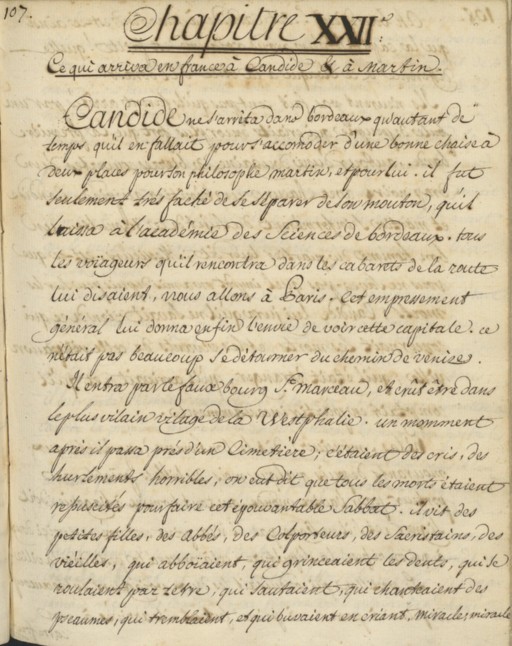 107.
Chapitre XXII.e
Ce qui arriva en france à Candide & à Martin.
Candide ne s'arrita dans bordeaux qu'autant de
temps, qu'il en fallait pour s'accomoder d'une bonne chaise à
deux places pour son philosophe martin, et pour lui. il fut
seulement trés faché de se séparer de son mouton, qu'il
laissa à l'académie des Sciences de bordeaux. tous
les voïageurs qu'il rencontra dans les cabarets de la route
lui disaient, nous allons à Paris. Cet empressement
général lui donna enfin l'envie de voir cette capitale. ce
n'était pas beaucoup se détourner du chemin de venise.
Il entra par le faux bourg St. marceau, et crût être dans
le plus vilain vilage de la Westphalie. un momment
aprés il passa prés d'un Cimetiere; c'étaient des cris, des
hurlements horribles; on eut dit que tous les morts étaient
ressuscités pour faire cet épouvantable Sabbat. il vit des
petites filles, des Abbés, des Colporteurs, des Sacristains, des
vieilles, qui abboïaient, qui grinceaient les dents, qui se
roulaient par terre, qui sautaient, qui chantaient des
pseaumes, qui tremblaient, et qui buvaient en criant, miracle, miracle